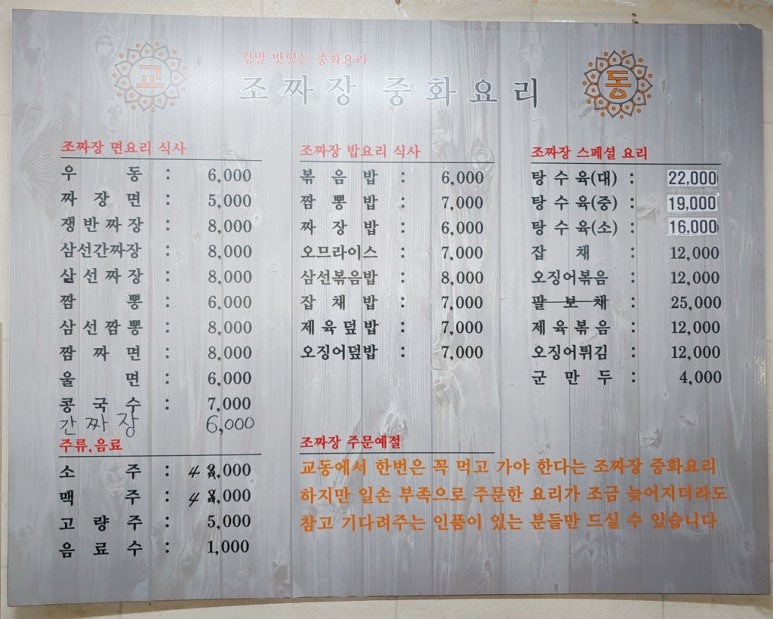 정말 맛있는 중화요리
교 조짜장 중화요리 동
조짜장 면요리 식사
우 동 : 6,000
짜 장 면 : 5,000
쟁반짜장 : 8,000
삼선간짜장 : 8,000
삼선짜장 : 8,000
짬 뽕 : 6,000
삼선짬뽕 : 8,000
짬 짜 면 : 8,000
울 면 : 6,000
콩 국 수 : 7,000
간짜장 6,000
주류,음료
소 주 : 4,000
맥 주 : 4,000
고 량 주 : 5,000
음 료 수 : 1,000
조짜장 밥요리 식사
볶 음 밥 : 6,000
짬 뽕 밥 : 7,000
짜 장 밥 : 6,000
오므라이스 : 7,000
삼선볶음밥 : 8,000
잡 채 밥 : 7,000
제육덮밥 : 7,000
오징어덮밥 : 7,000
조짜장 스페셜 요리
탕수육(대) : 22,000
탕수육(중) : 19,000
탕수육(소) : 16,000
잡 채 : 12,000
오징어볶음 : 12,000
팔 보 채 : 25,000
제육볶음 : 12,000
오징어튀김 : 12,000
군 만 두 : 4,000
조짜장 주문예절
교동에서 한번은 꼭 먹고 가야 한다는 조짜장 중화요리
하지만 일손 부족으로 주문한 요리가 조금 늦어지더라도
참고 기다려주는 인품이 있는 분들만 드실 수 있습니다